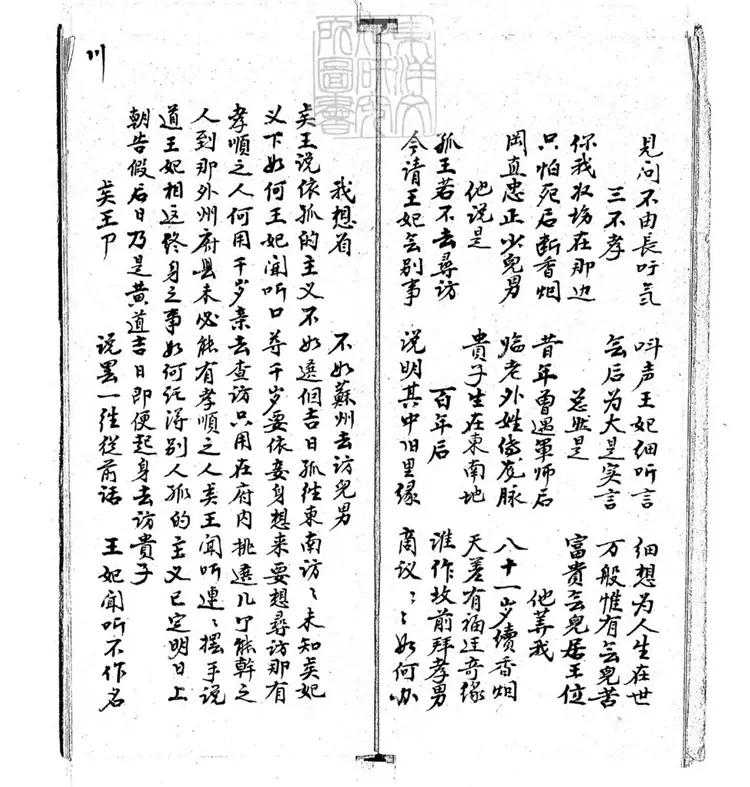 東洋文
化研究
所圖書
見问不由長吁气 叫声王妃细听言 细想为人生在世
三不孝 无后为大是实言 万般惟有无兒苦
你我双在那边 总然是 富貴无兒居王位
只怕死后断香烟 昔年曾遇軍师后 他算我
岡直忠正少兒男 臨老外姓傳脉 八十一岁續香烟
他说是 貴子生在東南地 天差有福廷奇缘
孤王若不去尋访 百年后 谁作坟前拜孝男
今请王妃无别事 说明其中旧里缘 商议〻〻如何办
我想着 不如蘇州去访兒男
矣王说依孤的主义不如选個吉日孤往東南访〻未知矣妃
义下如何王妃闻听口尊千岁要依妾身想来要想尋访那有
孝順之人何用千岁亲去查访只用在府内挑选几个能幹之
人到那外州府县未必能有孝順之人矣王闻听連〻摆手说
道王妃相这终身之事如何托得别人孤的主义已定明日上
朝告假后日乃是黄道吉日即便起身去访貴子
矣王卩 说罢一往從前话 王妃闻听不作名
川